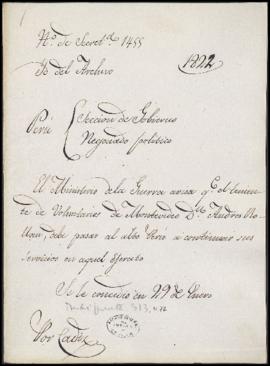 N.º de Secret.ª 1455
Id. del Archivo
1822
Perú
Seccion de Gobierno
Negociado politico
El Ministerio de la Guerra avisa q.e el tenien-
te de Voluntarios de Montevideo D.n Andres
debe pasar al alto Perú a continuar sus
servicios en aquel Ejercito
Se le concedió en 29 de Enero
Indiferente 313,
Por Cadiz